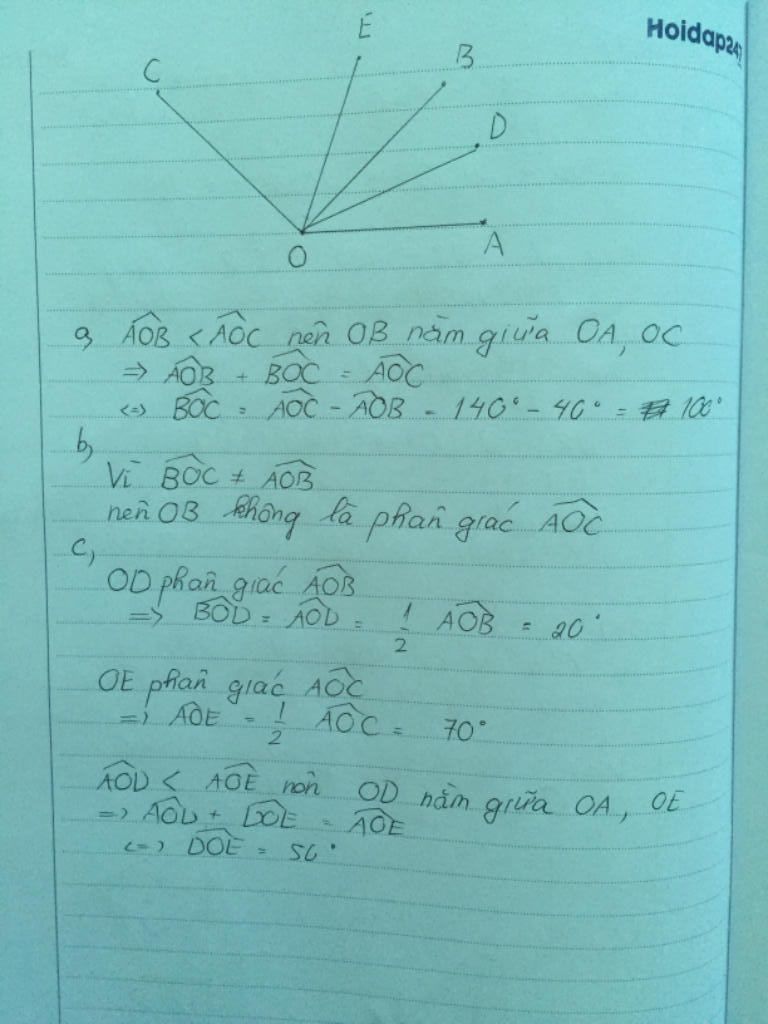 Hoidap247
E
C
B
D
O
A
a, AOB < AOC nên OB nằm giữa OA, OC
=> AOB + BOC = AOC
<=> BOC = AOC - AOB = 140° - 40° = 100°
b,
Vì BOC ≠ AOB
nên OB không là phân giác AOC
c,
OD phân giác AOB
=> BOD = AOD = 1/2 AOB = 20°
OE phân giác AOC
=> AOE = 1/2 AOC = 70°
AOD < AOE nên OD nằm giữa OA, OE
=> AOD + DOE = AOE
<=> DOE = 50°